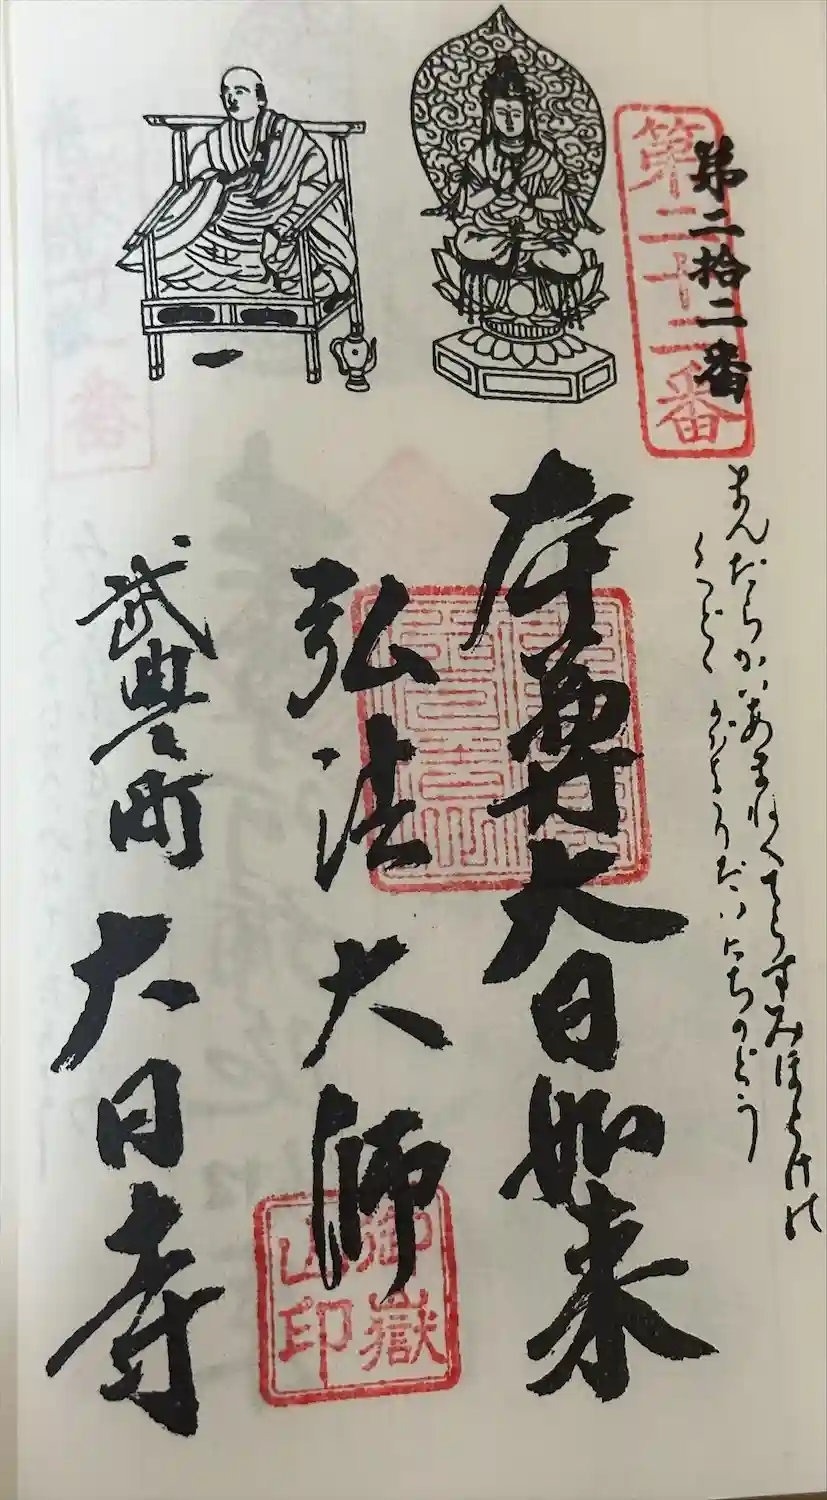 第二十二番
第二拾二番
まんだらかいあまねくてらすみほとけの
くどくがようだいにちのどう
本尊大日如来
弘法大師
武豊町
大日寺
御嶽
山印